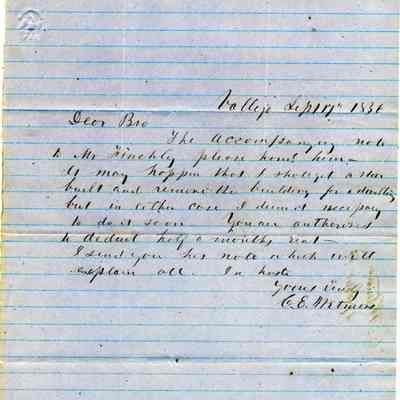 Vallejo Sept
Dear Bro
The accompanying note
to Mr please hand him—
It may happen that I shall get a
built and remove the building for a dwelling
but in either case I deem it necessary
to do it soon. You are authorized
to deduct half a months rent—
I send you his note which will
explain all. In haste
Yours truly
C. E.